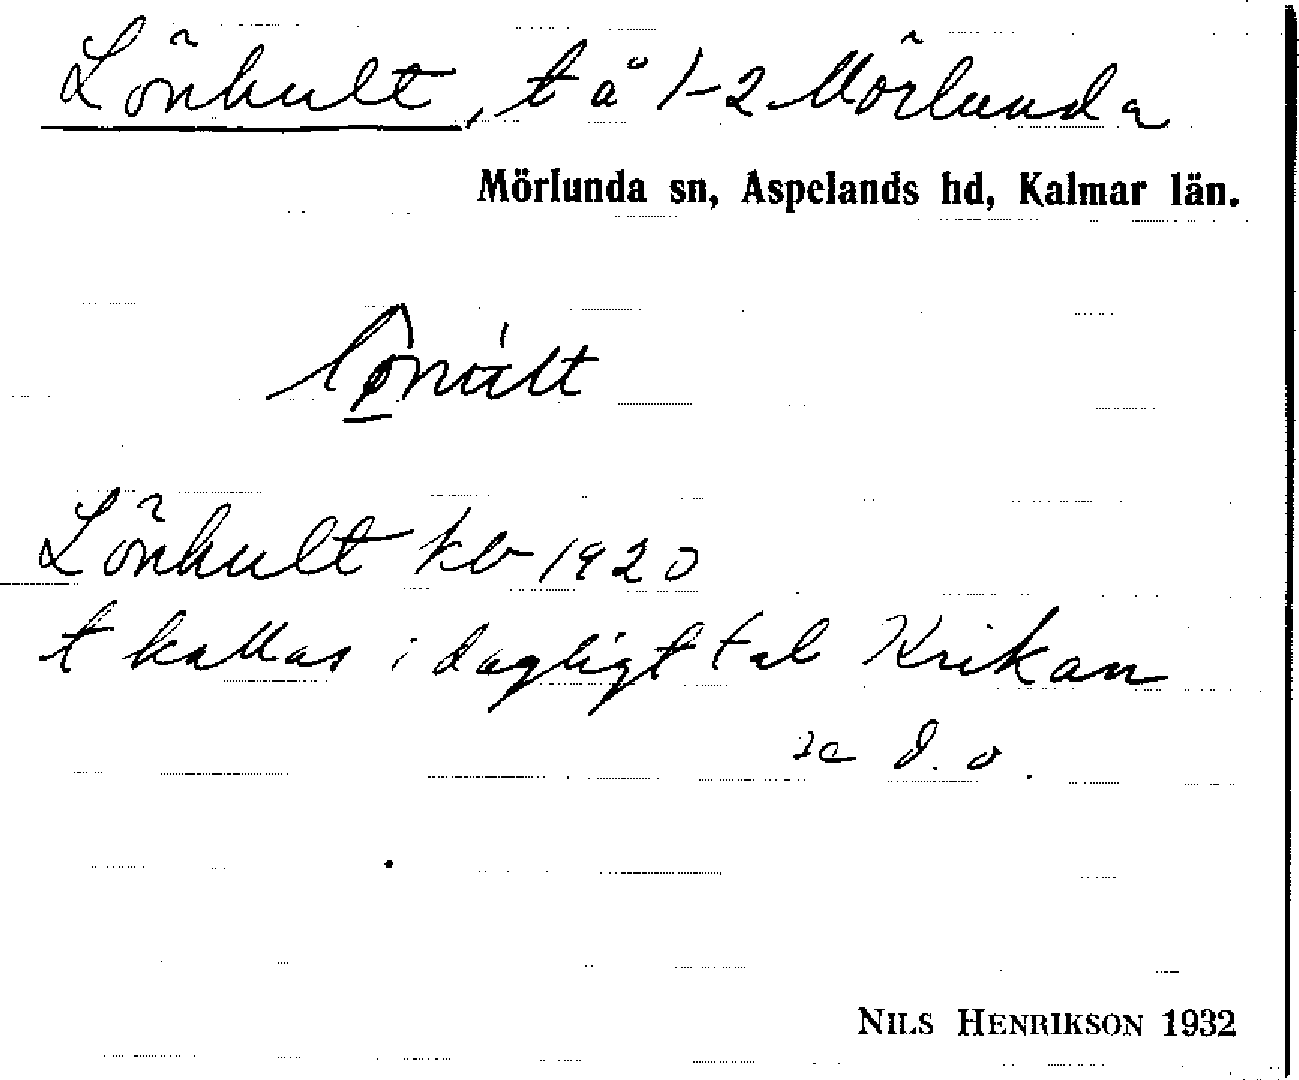 Lönhult, t å 1-2 Mörlunda
Mörlunda sn, Aspelands hd, Kalmar län.
Lönhult kb 1920
t kallas i dagligt tal Krikan
se d. o.
NILS HENRIKSON 1932